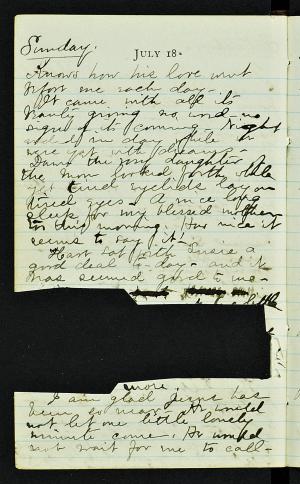 Sunday.
JULY 18.
Knows how his love went
before me each day.
It came with all its
giving no word no
sign of its coming. Night
in day
were yet with
Dawn the rosy daughter of
the morn looked forth while
yet tired eyelids lay on
tired eyes. A nice long
sleep for my blessed mother
this morning. How nice it
seems to say it!
Have sat with Susie a
good deal to-day and it
has seemed good to me
more.
I am glad Jesus has
been so near. He would
not let one little lonely
minute come. He would
not wait for me to call